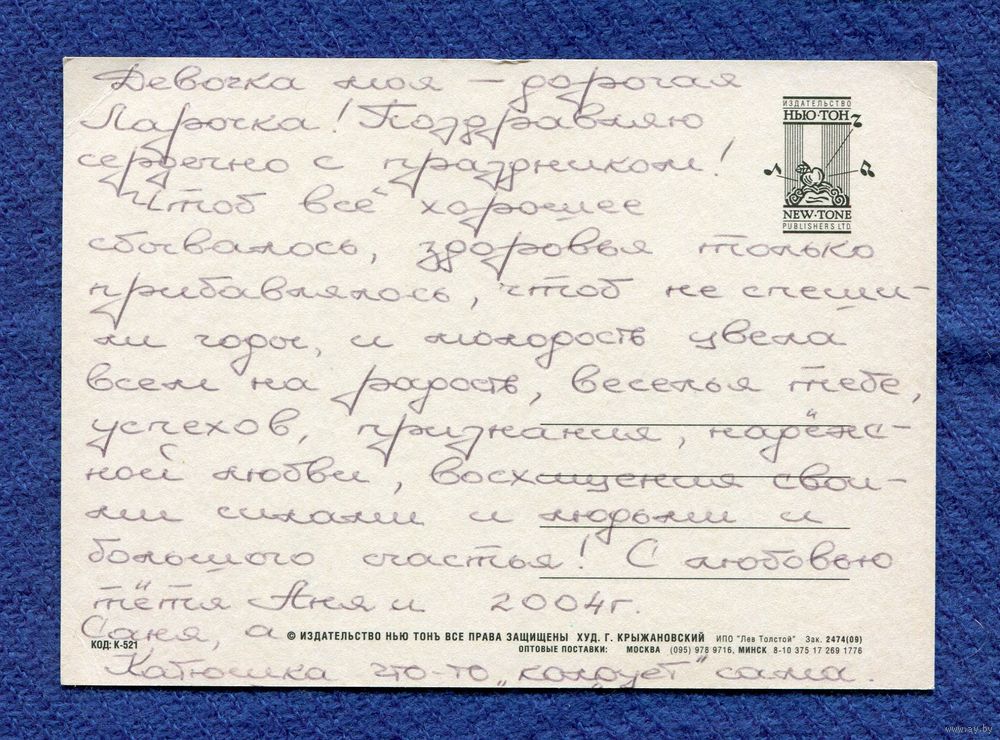 Девочка моя — дорогая
Ларочка! Поздравляю
сердечно с праздником!
Чтоб всё хорошее
сбывалось, здоровья только
прибавлялось, чтоб не спеши-
ли годы, и молодость цвела
всем на радость, веселья тебе,
успехов, признания, надёж-
ной любви, восхищения свои-
ми силами и людьми и
большого счастья! С любовью
тётя Аня и 2004г.
Саня, а
Катюшка что-то „колдует" сама.
ИЗДАТЕЛЬСТВО
НЬЮ·ТОНЪ
NEW·TONE
PUBLISHERS LTD.
КОД: К-521
© ИЗДАТЕЛЬСТВО НЬЮ ТОНЪ ВСЕ ПРАВА ЗАЩИЩЕНЫ ХУД. Г. КРЫЖАНОВСКИЙ ИПО "Лев Толстой" Зак. 2474(09)
ОПТОВЫЕ ПОСТАВКИ: МОСКВА (095) 978 9716, МИНСК 8-10 375 17 269 1776
www.ay.by